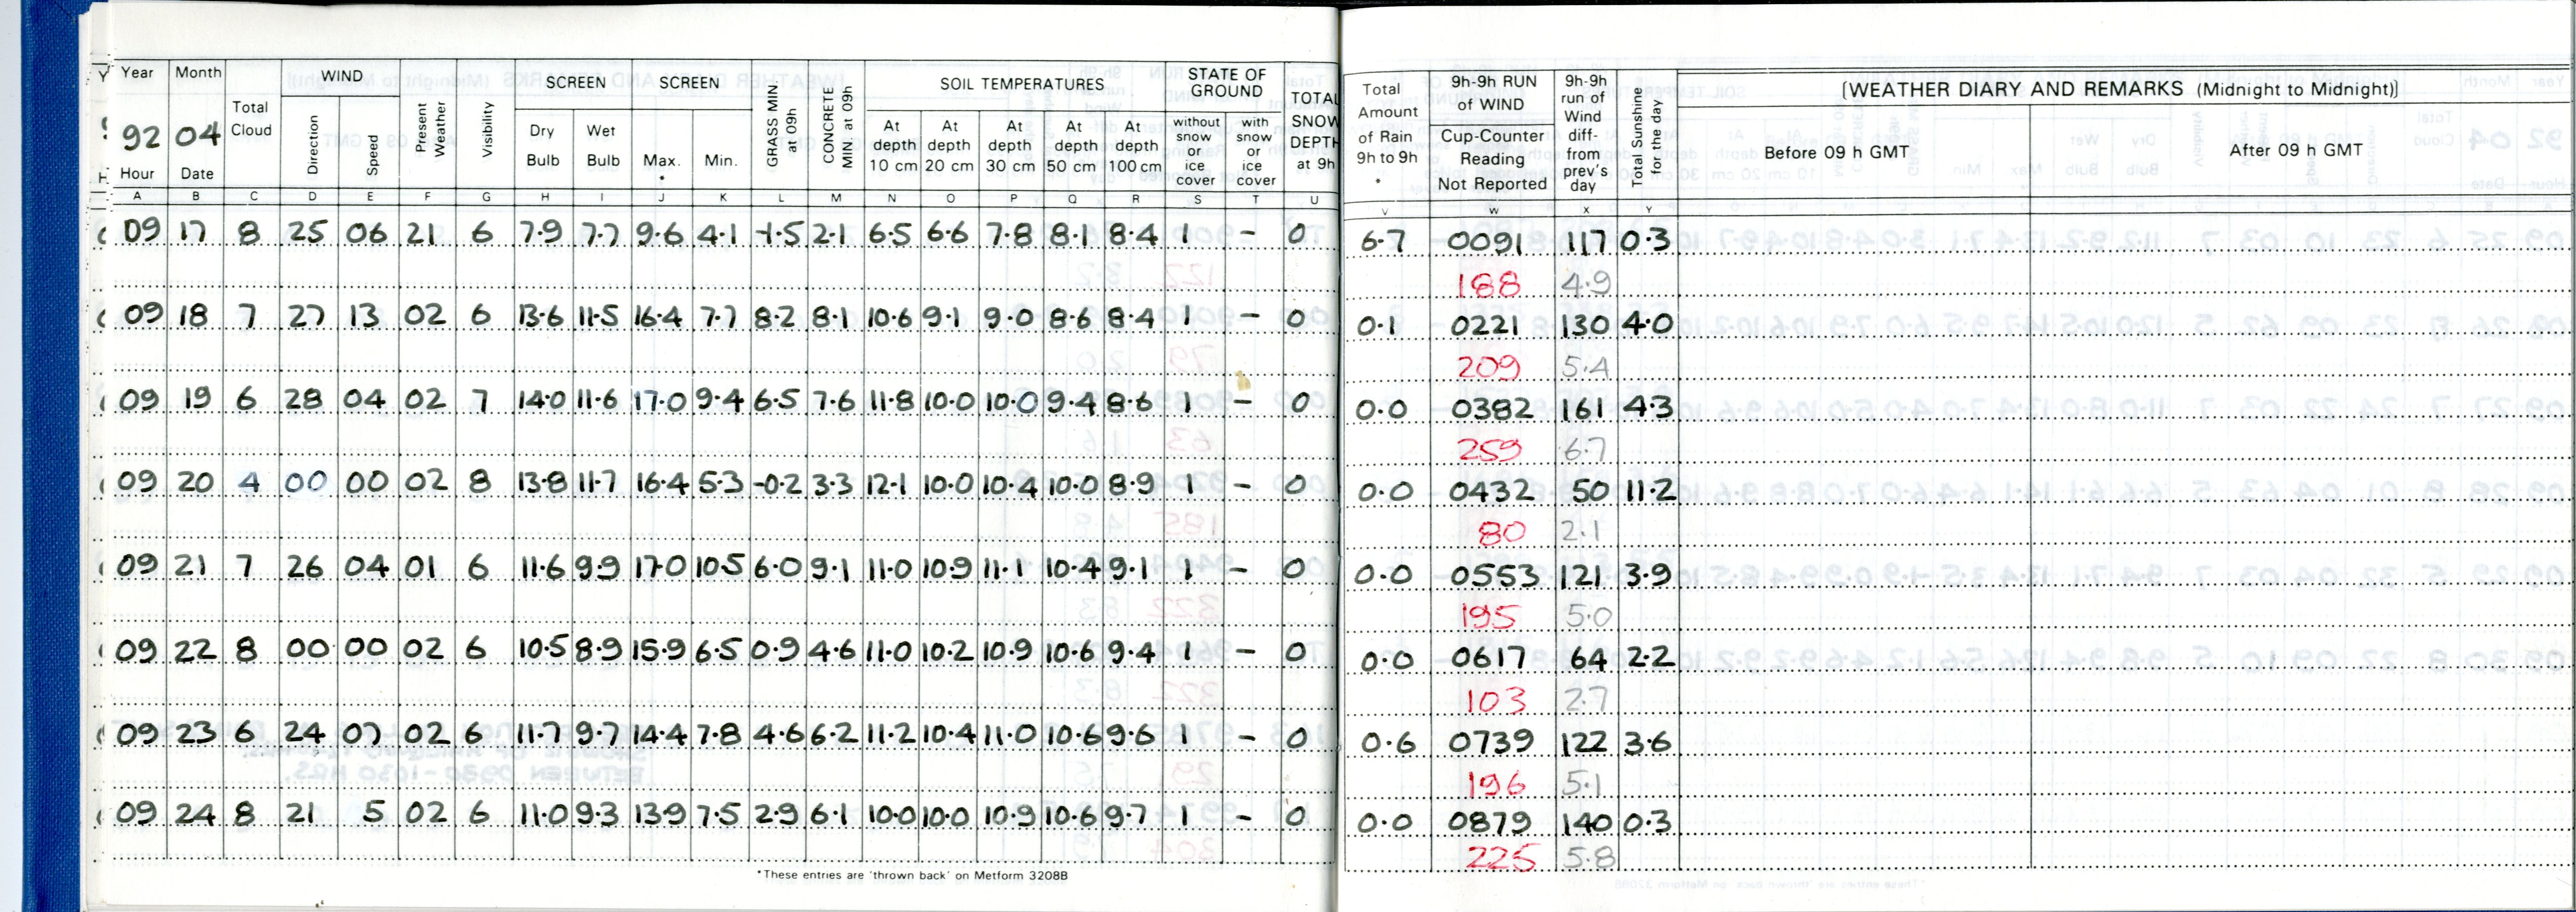 Year Month WIND SCREEN SCREEN SOIL TEMPERATURES STATE OF GROUND
92 04 Total Cloud Direction Speed Present Weather Visibility Dry Bulb Wet Bulb Max. * Min. GRASS MIN. at 09h CONCRETE MIN. at 09h At depth 10 cm At depth 20 cm At depth 30 cm At depth 50 cm At depth 100 cm without snow or ice cover with snow or ice cover TOTAL SNOW DEPTH at 9h
Hour Date
Total Amount of Rain 9h to 9h * 9h-9h RUN of WIND Cup-Counter Reading Not Reported 9h-9h run of Wind diff- from prev's day Total Sunshine for the day [WEATHER DIARY AND REMARKS (Midnight to Midnight)]
Before 09 h GMT After 09 h GMT
A B C D E F G H I J K L M N O P Q R S T U V W X Y
09 17 8 25 06 21 6 7.9 7.7 9.6 4.1 -1.5 2.1 6.5 6.6 7.8 8.1 8.4 1 – 0 6.7 0091 117 0.3
188 4.9
09 18 7 27 13 02 6 13.6 11.5 16.4 7.7 8.2 8.1 10.6 9.1 9.0 8.6 8.4 1 – 0 0.1 0221 130 4.0
209 5.4
09 19 6 28 04 02 7 14.0 11.6 17.0 9.4 6.5 7.6 11.8 10.0 10.0 9.4 8.6 1 – 0 0.0 0382 161 4.3
259 6.7
09 20 4 00 00 02 8 13.8 11.7 16.4 5.3 -0.2 3.3 12.1 10.0 10.4 10.0 8.9 1 – 0 0.0 0432 50 11.2
80 2.1
09 21 7 26 04 01 6 11.6 9.9 17.0 10.5 6.0 9.1 11.0 10.9 11.1 10.4 9.1 1 – 0 0.0 0553 121 3.9
195 5.0
09 22 8 00 00 02 6 10.5 8.9 15.9 6.5 0.9 4.6 11.0 10.2 10.9 10.6 9.4 1 – 0 0.0 0617 64 2.2
103 2.7
09 23 6 24 07 02 6 11.7 9.7 14.4 7.8 4.6 6.2 11.2 10.4 11.0 10.6 9.6 1 – 0 0.6 0739 122 3.6
196 5.1
09 24 8 21 5 02 6 11.0 9.3 13.9 7.5 2.9 6.1 10.0 10.0 10.9 10.6 9.7 1 – 0 0.0 0879 140 0.3
225 5.8
*These entries are 'thrown back' on Metform 3208B